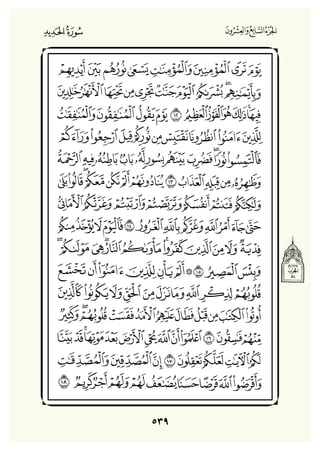 الجزء السابع والعشرون
سورة الحديد
يَوْمَ تَرَى ٱلْمُؤْمِنِينَ وَٱلْمُؤْمِنَٰتِ يَسْعَىٰ نُورُهُم بَيْنَ أَيْدِيهِمْ
وَبِأَيْمَٰنِهِمۖ بُشْرَىٰكُمُ ٱلْيَوْمَ جَنَّٰتٌ تَجْرِي مِن تَحْتِهَا ٱلْأَنْهَٰرُ خَٰلِدِينَ
فِيهَاۚ ذَٰلِكَ هُوَ ٱلْفَوْزُ ٱلْعَظِيمُ ١٢ يَوْمَ يَقُولُ ٱلْمُنَٰفِقُونَ وَٱلْمُنَٰفِقَٰتُ
لِلَّذِينَ ءَامَنُوا۟ ٱنظُرُونَا نَقْتَبِسْ مِن نُّورِكُمْ قِيلَ ٱرْجِعُوا۟ وَرَآءَكُمْ
فَٱلْتَمِسُوا۟ نُورًاۖ فَضُرِبَ بَيْنَهُم بِسُورٍ لَّهُۥ بَابٌۢ بَاطِنُهُۥ فِيهِ ٱلرَّحْمَةُ
وَظَٰهِرُهُۥ مِن قِبَلِهِ ٱلْعَذَابُ ١٣ يُنَادُونَهُمْ أَلَمْ نَكُن مَّعَكُمْۖ قَالُوا۟ بَلَىٰ
وَلَٰكِنَّكُمْ فَتَنتُمْ أَنفُسَكُمْ وَتَرَبَّصْتُمْ وَٱرْتَبْتُمْ وَغَرَّتْكُمُ ٱلْأَمَانِيُّ
حَتَّىٰ جَآءَ أَمْرُ ٱللَّهِ وَغَرَّكُم بِٱللَّهِ ٱلْغَرُورُ ١٤ فَٱلْيَوْمَ لَا يُؤْخَذُ مِنكُمْ
فِدْيَةٌ وَلَا مِنَ ٱلَّذِينَ كَفَرُوا۟ۚ مَأْوَىٰكُمُ ٱلنَّارُۖ هِيَ مَوْلَىٰكُمْۖ
وَبِئْسَ ٱلْمَصِيرُ ١٥ ۞ أَلَمْ يَأْنِ لِلَّذِينَ ءَامَنُوٓا۟ أَن تَخْشَعَ
قُلُوبُهُمْ لِذِكْرِ ٱللَّهِ وَمَا نَزَلَ مِنَ ٱلْحَقِّ وَلَا يَكُونُوا۟ كَٱلَّذِينَ
أُوتُوا۟ ٱلْكِتَٰبَ مِن قَبْلُ فَطَالَ عَلَيْهِمُ ٱلْأَمَدُ فَقَسَتْ قُلُوبُهُمْۖ وَكَثِيرٌ
مِّنْهُمْ فَٰسِقُونَ ١٦ ٱعْلَمُوٓا۟ أَنَّ ٱللَّهَ يُحْيِ ٱلْأَرْضَ بَعْدَ مَوْتِهَاۚ قَدْ بَيَّنَّا
لَكُمُ ٱلْءَايَٰتِ لَعَلَّكُمْ تَعْقِلُونَ ١٧ إِنَّ ٱلْمُصَّدِّقِينَ وَٱلْمُصَّدِّقَٰتِ
وَأَقْرَضُوا۟ ٱللَّهَ قَرْضًا حَسَنًا يُضَٰعَفُ لَهُمْ وَلَهُمْ أَجْرٌ كَرِيمٌ ١٨
٥٣٩